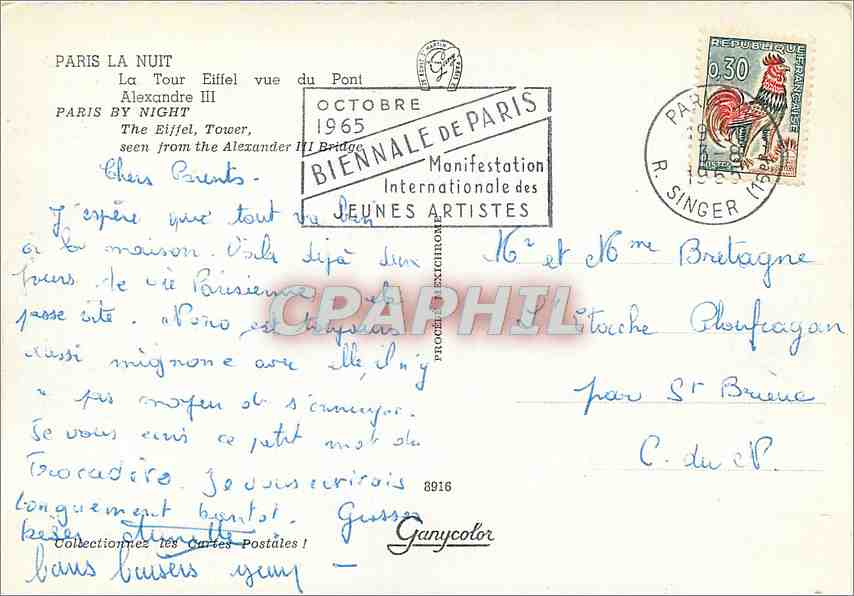 PARIS LA NUIT
La Tour Eiffel vue du Pont
Alexandre III
PARIS BY NIGHT
The Eiffel, Tower,
seen from the Alexander III Bridge
OCTOBRE
1965
BIENNALE DE PARIS
Manifestation
Internationale des
JEUNES ARTISTES
REPUBLIQUE FRANÇAISE
0,30
POSTES
PARIS
R. SINGER
Chers Parents -
J'espère que tout va bien
à la maison. Voilà déjà deux
jours de vie Parisienne elle
passe vite. Nono est toujours
aussi mignone avec elle, il n'y
a pas moyen de s'ennuyer.
Je vous écris ce petit mot du
Trocadéro. Je vous écrirais
longuement bientôt. Grosses
bons baisers
PROCÉDÉ MEXICHROME
CPAPHIL
Mr et Mme Bretagne
Ploufragan
par St Brieuc
C. du N.
8916
Ganycolor
Collectionnez les Cartes Postales !